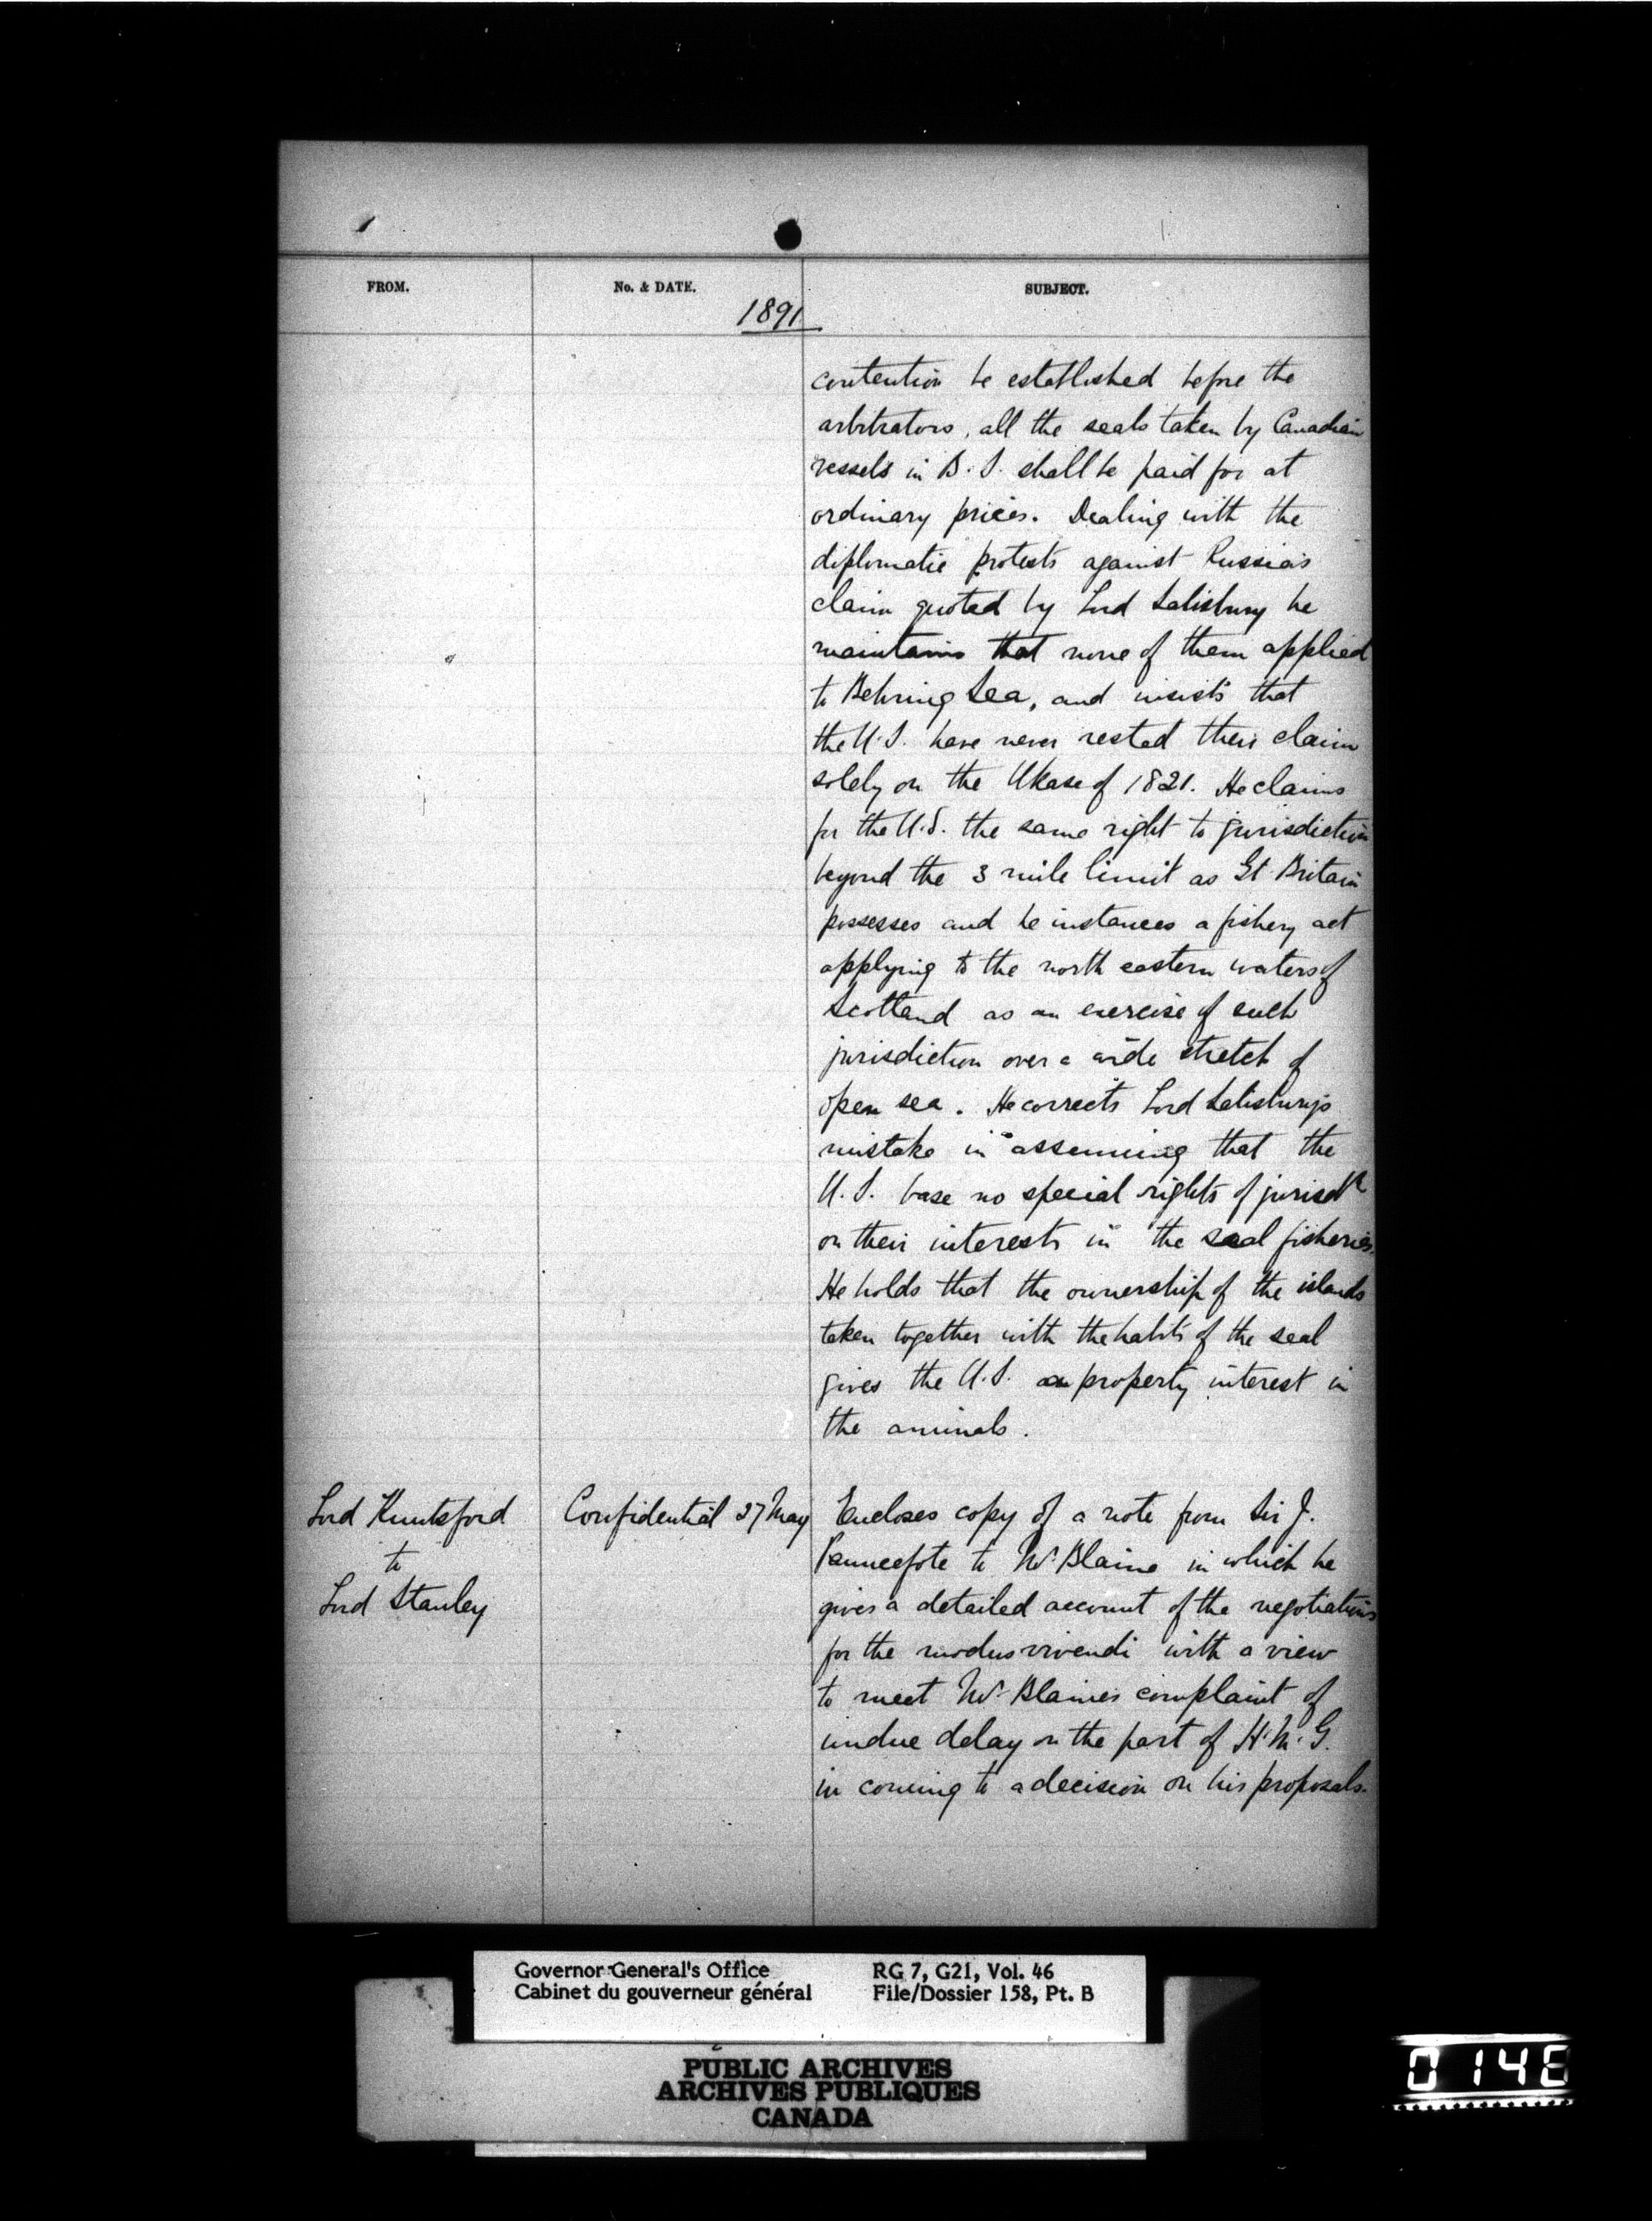 FROM. No. & DATE. SUBJECT.
1891
contention be established before the
arbitrators, all the seals taken by Canadian
vessels in B.S. shall be paid for at
ordinary prices. Dealing with the
diplomatic protests against Russia's
claim quoted by Lord Salisbury he
maintains that none of them applied
to Behring Sea, and insists that
the U.S. have never rested their claim
solely on the Ukase of 1821. He claims
for the U.S. the same right to jurisdiction
beyond the 3 mile limit as Gt Britain
possesses and he instances a fishery act
applying to the north eastern waters of
Scotland as an exercise of such
jurisdiction over a wide stretch of
open sea. He corrects Lord Salisbury's
mistake in assuming that the
U.S. base no special rights of jurisdn
on their interests in the seal fisheries.
He holds that the ownership of the islands
taken together with the habits of the seal
gives the U.S. a property interest in
the animals.
Lord Knutsford Confidential 27 May Encloses copy of a note from Sir J.
to Pauncefote to Mr Blaine in which he
Lord Stanley gives a detailed account of the negotiations
for the modus vivendi with a view
to meet Mr Blaine's complaint of
undue delay on the part of H.M.G.
in coming to a decision on his proposals.
Governor General's Office RG 7, G21, Vol. 46
Cabinet du gouverneur général File/Dossier 158, Pt. B
PUBLIC ARCHIVES
ARCHIVES PUBLIQUES
CANADA